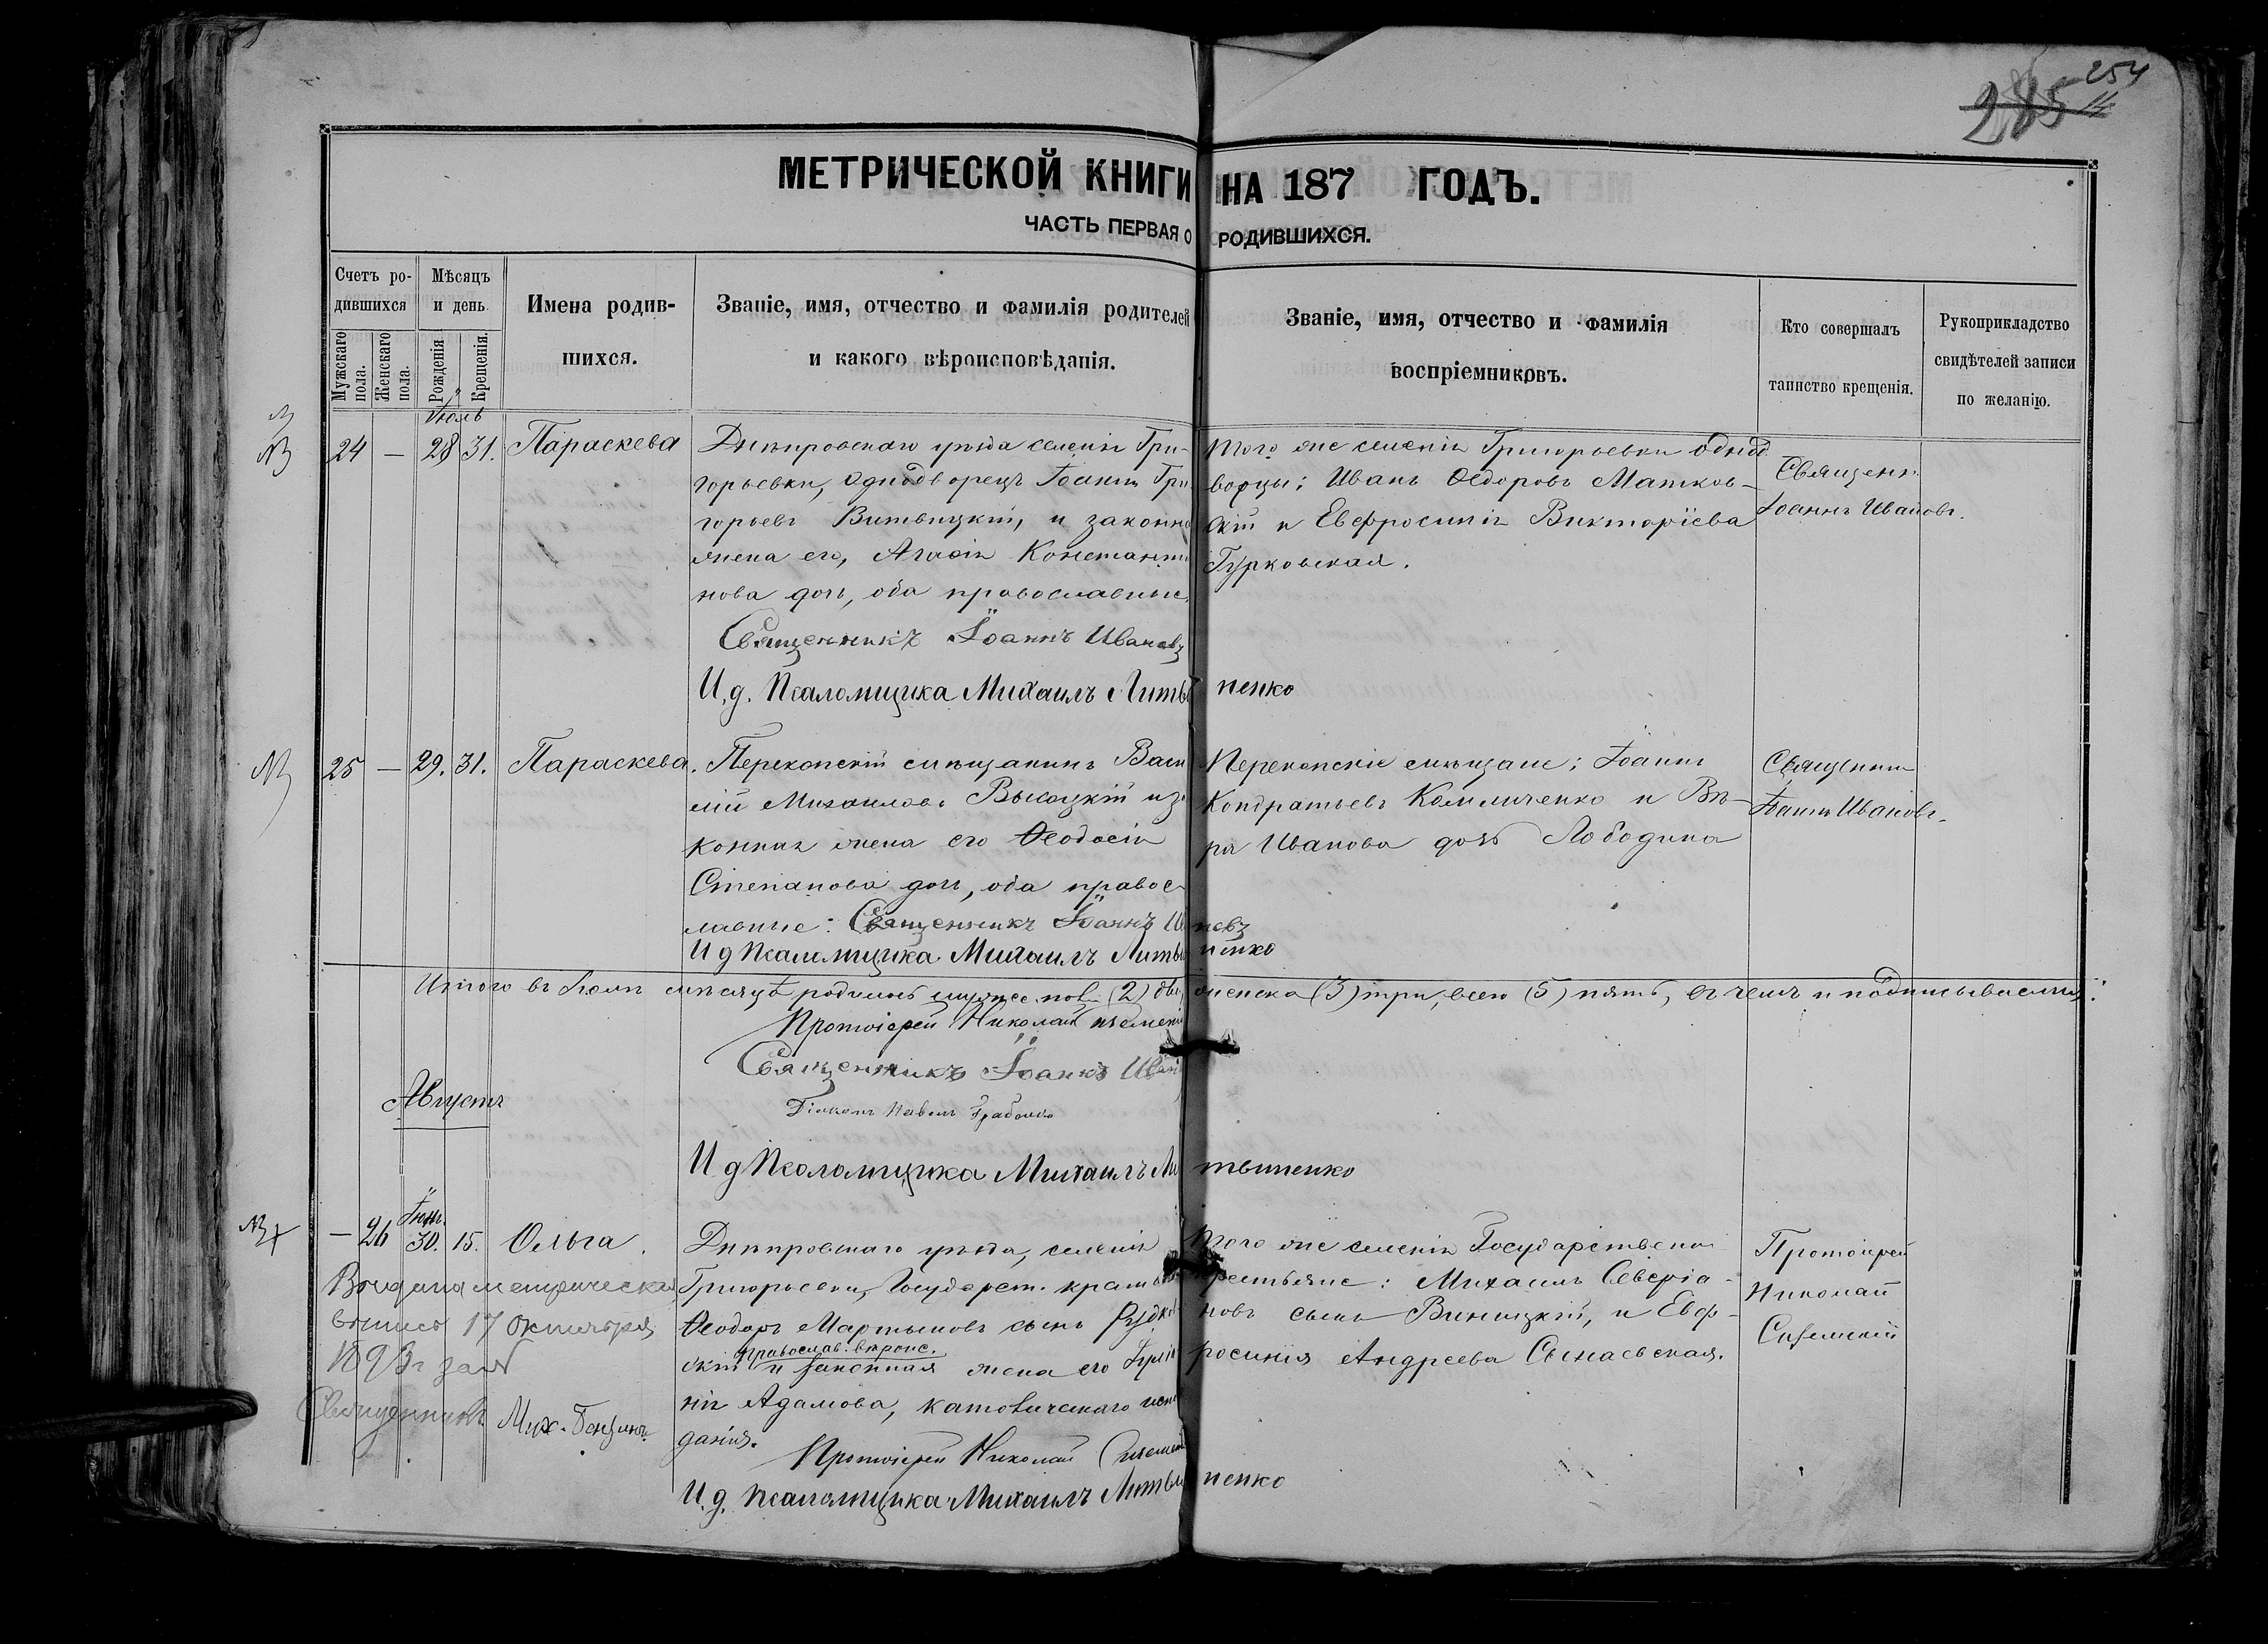 254
285
МЕТРИЧЕСКОЙ КНИГИ НА 187 ГОДЪ.
ЧАСТЬ ПЕРВАЯ О РОДИВШИХСЯ.
Счетъ родившихся
Мужскаго пола.
Женскаго пола.
Мѣсяцъ и день
Рожденія
Крещенія.
Имена родив-
шихся.
Званіе, имя, отчество и фамилія родителей
и какого вѣроисповѣданія.
Званіе, имя, отчество и фамилія
воспріемниковъ.
Кто совершалъ
таинство крещенія.
Рукоприкладство
свидѣтелей записи
по желанію.
Іюль
24 — 28 31. Параскева
Днѣпровскаго уѣзда селенія Гри-
горьевки, однодворецъ Іоаннъ Гри
горьевъ Витвицкій, и законна
жена его, Агафія Константи
нова дочь, оба православные.
Священникъ Іоаннъ Ивановъ
И. д. Псаломщика Михаилъ Литвиненко
Того же селенія Григорьевки однод
ворцы: Иванъ Ѳедоровъ Матков-
скій и Евфросинія Викторіева
Гурковская.
Священн.
Іоаннъ Ивановъ.
25 — 29. 31. Параскева.
Перекопскій мѣщанинъ Васи
лій Михаиловъ Высоцкій и за
конная жена его Ѳеодосія
Степанова дочь, оба правос-
лавные: Священникъ Іоаннъ Ивановъ
И д Псаломщика Михаилъ Литвиненко
Перекопскіе мѣщане: Іоаннъ
Кондратьевъ и Вѣ-
ра Иванова дочь Лободина
Священни
Іоаннъ Ивановъ.
Итого въ Іюлѣ мѣсяцѣ родилось мужес. пол. (2) два женска (3) три, всего (5) пять, въ чемъ и подписываемся:
Протоіерей Николай
Священникъ Іоаннъ Иван
Діаконъ Павелъ
И д Псаломщика Михаилъ Литвиненко
Августъ
Іюн.
— 26 30. 15. Ольга.
Днѣпровскаго уѣзда, селенія
Григорьевки, Государст. крестьян
Ѳеодоръ Мартыновъ сынъ Рудков
скій православ. вѣроис. и законная жена его
нія Адамова, католическаго испо
данія.
Протоіерей Николай
И. д. Псаломщика Михаилъ Литвиненко
Того же селенія Государствен
крестьяне: Михаилъ Северіа-
новъ сынъ Виницкій, и Евф-
росинія Андреева
Протоіерей
Николай
Выдана метрическая
выпись 17 октября
Священникъ Мих.